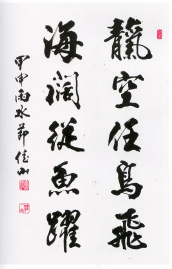 氋空任鳥飛
海阔從魚躍
甲申雨水節